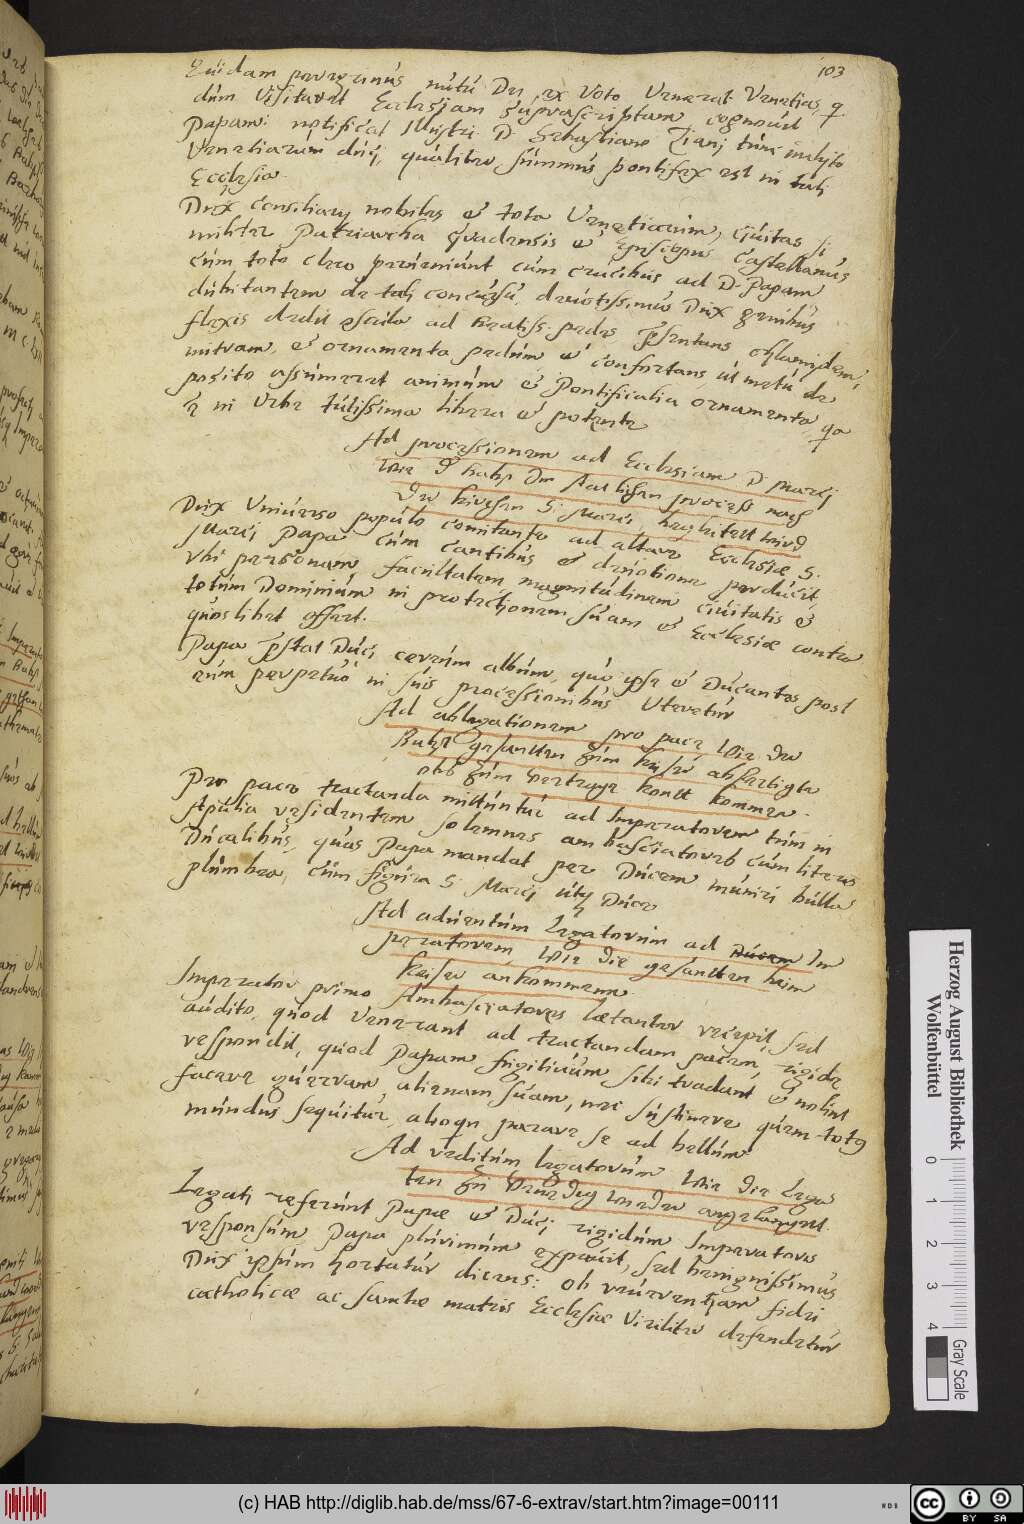 103
Quidam peregrinus nutu Dei ex Voto Venerat Venetias, q
dum Visitaret Ecclesiam supra scriptam cognovit
Papam: notificat Illustri D. Sebastiano Ziani tunc inclyto
Venetiarum duci, qualiter summus pontifex est in tali
Ecclesia.
Dux consiliarij nobiles et tota Venetiarum civitas si
militer Patriarcha Gradensis et Episcopus Castellanus
cum toto clero perveniunt cum crucibus ad D. Papam
dubitantem de tali concursu, devotissimus Dux genibus
flexis dedit oscula ad Beatiss. pedes psentans chlamydem,
mitram, et ornamenta pedum et confortans, ut metu de
posito assumeret animum et Pontificalia ornamenta, qa
e in Urbe tutissima libera et potente
Ad processionem ad Ecclesiam D. Marci
Wie d Babst Im
der kirchen S. Marci, begleitett wird
Dux Universo populo comitante ad altare Ecclesiæ S.
Marci Papa cum cantibus et devotione perducit,
Vbi personam, facultatem magnitudinem civitatis et
totum Dominium in protectionem suam et Ecclesiæ contra
quoslibet offert.
Papa pstat Duci cereum album, quo ipse et Ducantes post
eum perpetuo in suis processionibus Uteretur
Ad ablegationem pro pace, Wie die
Babst gesandten zum keiser abfertigte
obs zum vertrage kont kommen.
Pro pace tractanda mittuntur ad Imperatorem tum in
Apulia residentem solemnes ambasciatores cum literis
Ducalibus, quas Papa mandat per Ducem muniri bulla
plumbea, cum figura S. Marci utq Duce
Ad adventum Legatorum ad Ducem Im
peratorem, Wie die gesandten beim
keiser ankommenn.
Imperator primo Ambasciatores lætanter recepit, sed
audito, quod Venerant ad tractandam pacem, rigide
respondit, quod Papam fugitivum sibi tradant et nolint
facere guerram, alienam suam, nec sustinere quem totq
mundus sequitur, alioqn parare se ad bellum
Ad reditum legatorum Wie die Lega
ten zu Venedig wieder angelanget.
Legati referunt Papæ et Duci rigidum Imperatoris
responsum Papa plurimum expavit, sed benignissimus
Dux ipsum hortatur dicens: ob reverentiam fidei
catholicæ ac sanctæ matris Ecclesiæ Viriliter defendetur
Herzog August Bibliothek
Wolfenbüttel
0 1 2 3 4
Gray Scale
(c) HAB http://diglib.hab.de/mss/67-6-extrav/start.htm?image=00111
WDB
cc BY SA